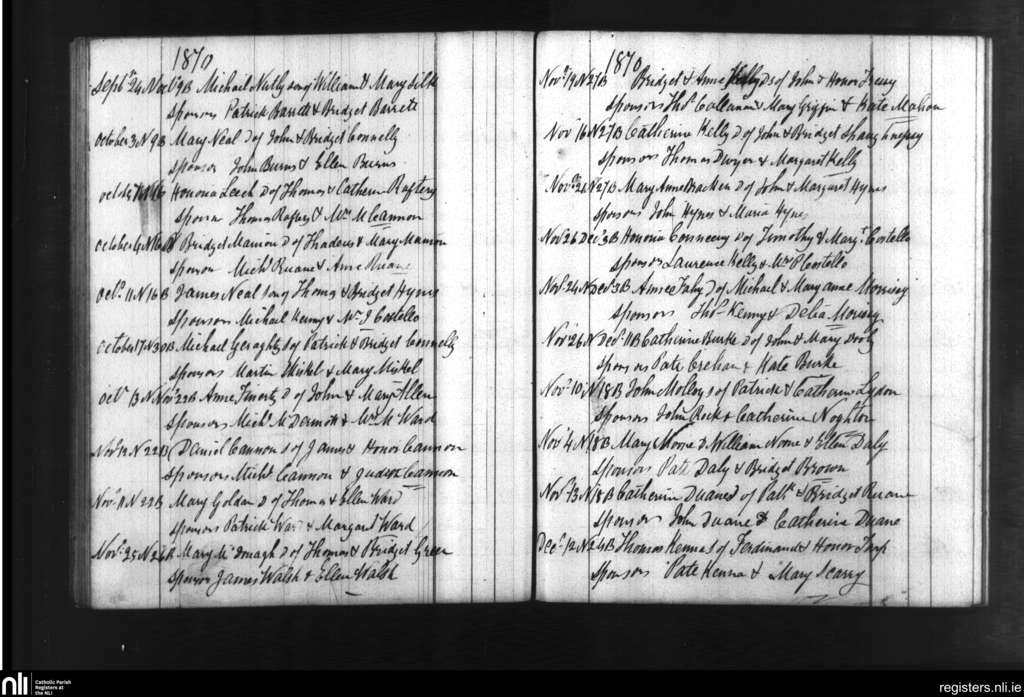 1870
Septbr 24 Nov 9B Michael Nally son of William & Mary Silk
Sponsors Patrick Barrett & Bridget Barrett
October 3 N 9B Mary Neal D of John & Bridget Connelly
Sponsor John Burns & Ellen Burns
Honoria Leech D of Thomas & Catherin Raftery
Sponsor Thomas Raftery & Mrs McCannon
October Bridget Mannion D of Thadeus & Mary Mannion
Sponson Michl Ruane & Anne Ruane
Octr 11 N 16B James Neal son of Thomas & Bridget Hynes
Sponsors Michael Kenny & Mrs J Costello
October 17 N 20B Michael Geraghty son of Patrick & Bridget Connelly
Sponsors Martin Miskel & Mary Miskel
Octr 13 N Novr 22B Anne Finerty D of John & Mary Allen
Sponsors Michl McDermott & Mrs M Ward
Novr 12 N 22B Daniel Cannon s of James & Honor Cannon
Sponsors Michl Cannon & Judith Cannon
Novr 11 N 22B Mary Goldan D of Thomas & Ellen Ward
Sponsors Patrick Ward & Margaret Ward
Novr 25 N 26B Mary McDonagh D of Thomas & Bridget Green
Sponsor James Walsh & Ellen Walsh
1870
Novr 19 N 27B Bridget & Anne Kelly Ds of John & Honor Treacy
Sponsors Ths Callanan & Mary Griffin & Kate Mahon
Nov 16 N 27B Catherine Kelly D of John & Bridget Shaughnessy
Sponsors Thomas Dwyer & Margaret Kelly
Novr 26 N 27B Mary Anne Bracken D of John & Margaret Hynes
Sponsors John Hynes & Maria Hynes
Novr 26 Decr 3B Honoria Conneeny D of Timothy & Margt Costello
Sponsors Laurence Kelly & Mrs P Costello
Novr 24 N Decr 3B Anne Fahy D of Michael & Mary anne Morrissy
Sponsors Ths Kenny & Delia Morissy
Novr 26 N Decr 11B Catherine Burke D of John & Mary Dooly
Sponsors Pate Crehan & Kate Burke
Novr 10 N 18B John Molloy s of Patrick & Catherine Lydon
Sponsors John Rock & Catherine Noghton
Novr 4 N 18B Mary Noone D William Noone & Ellen Daly
Sponsors Pate Daly & Bridget Brown
Novr 13 N 18B Catherin Duane D of Patk & Bridget Ruane
Sponsors John Duane & Catherine Duane
Decr 12 N 24B Thomas Kenna s of Ferdinand & Honor
Sponsors Pate Kenna & Mary Scarry
nli
Catholic Parish
Registers at
the NLI
registers.nli.ie